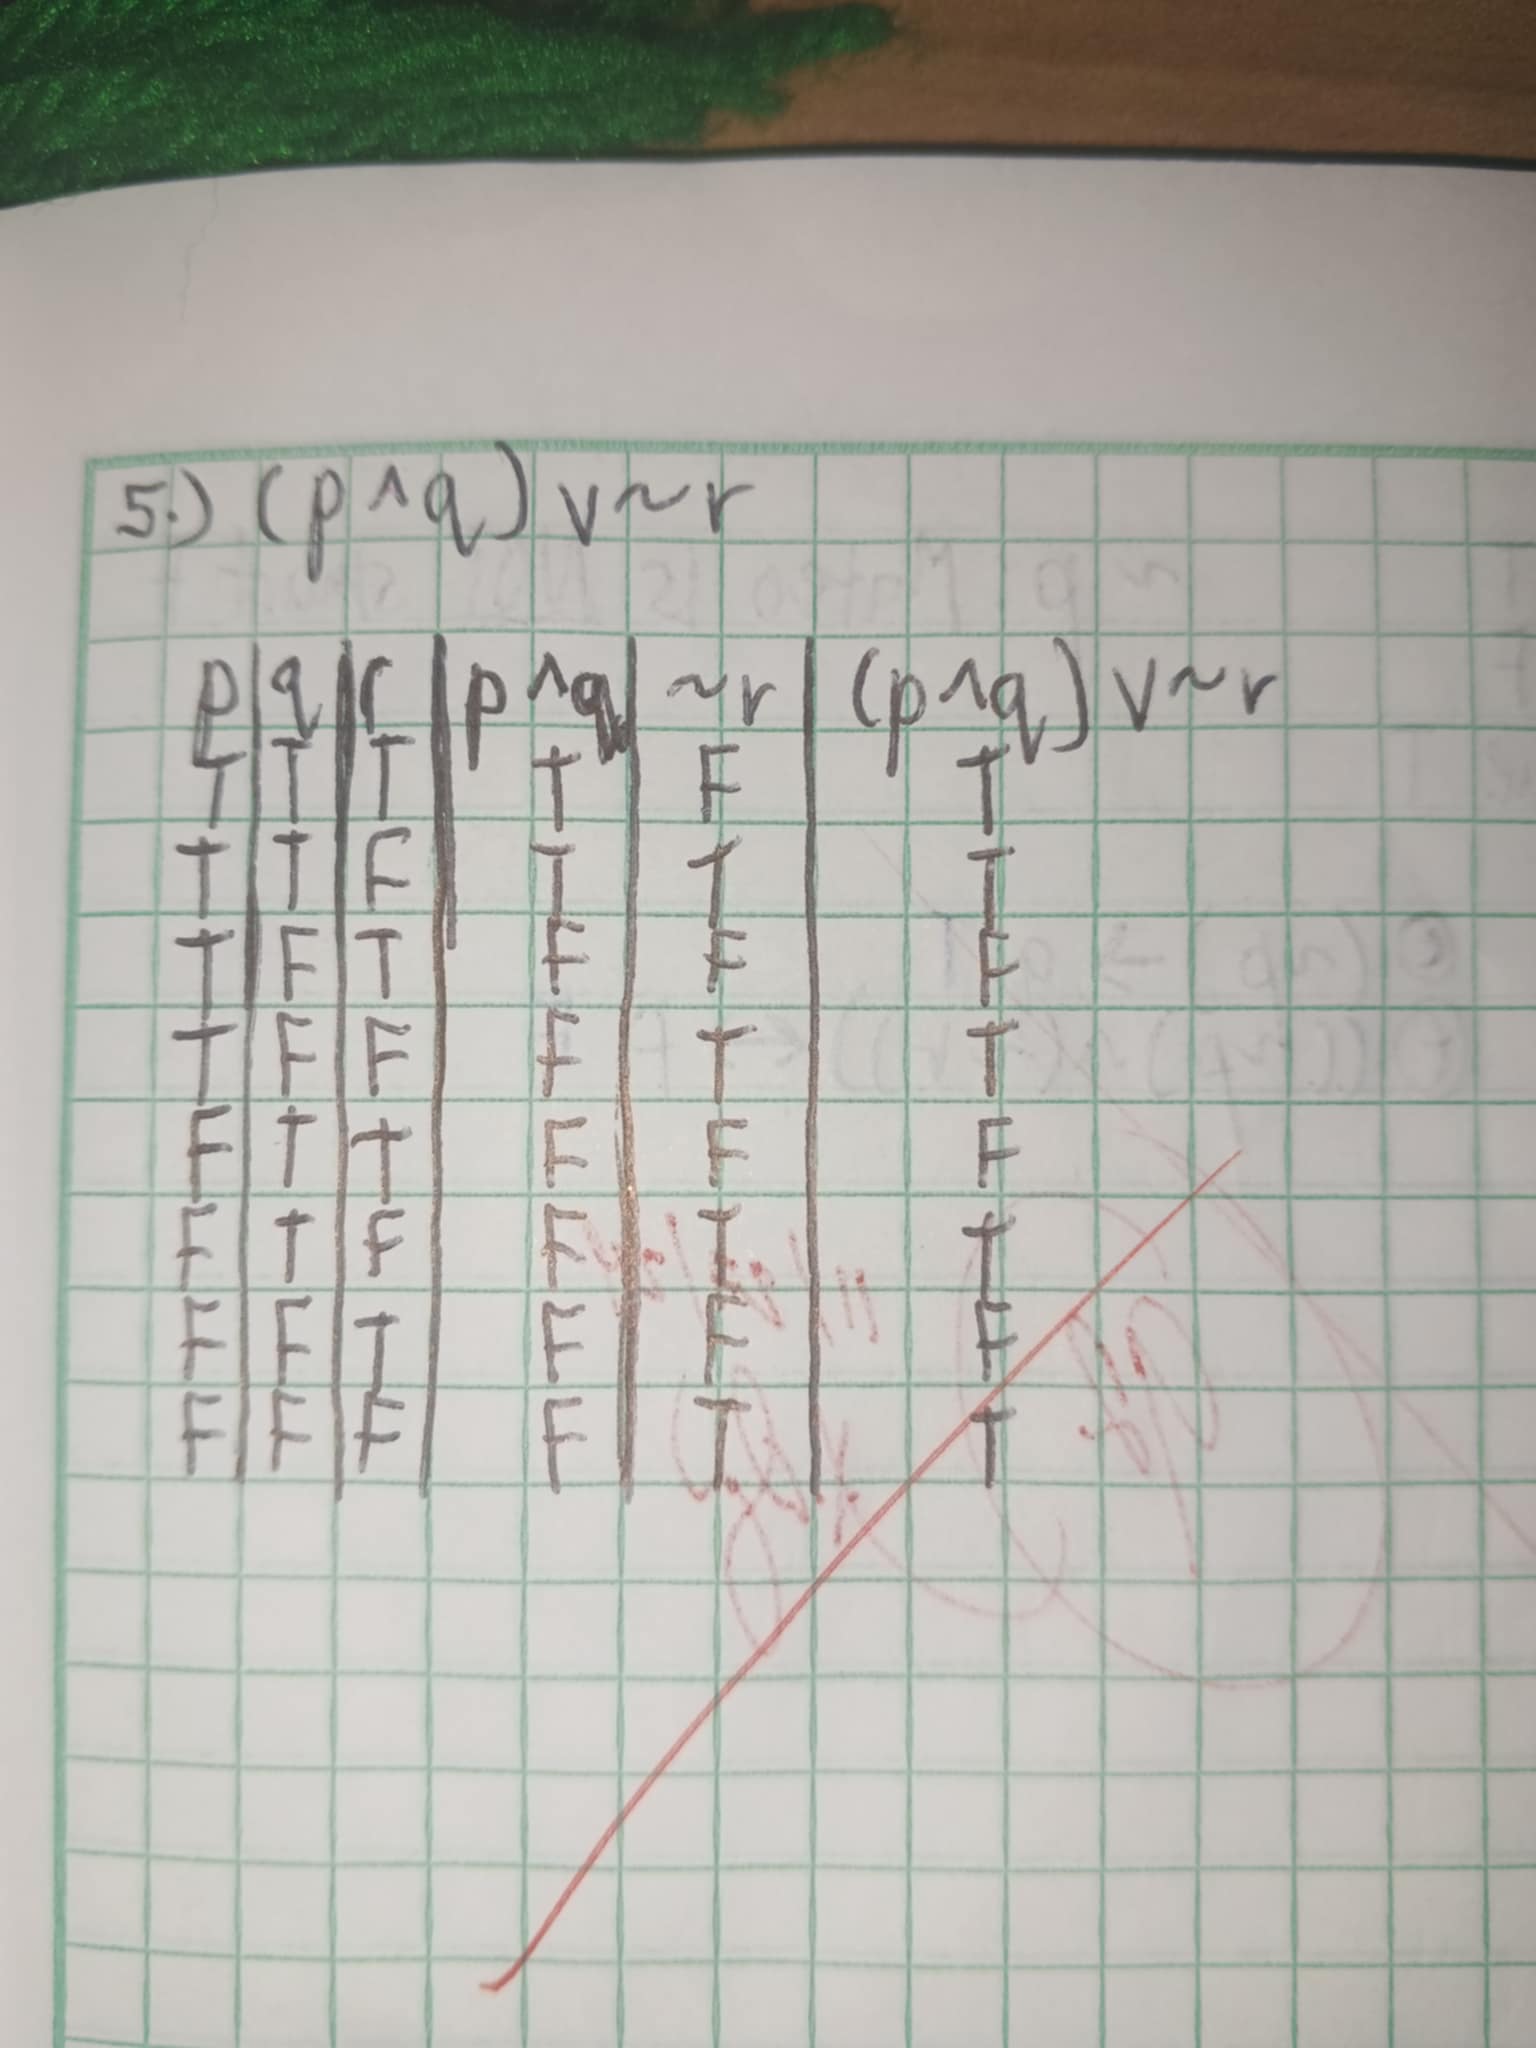 5.) (p ^ q) v ~ r
p | q | r | p ^ q | ~ r | (p ^ q) v ~ r
T T T T F T
T T F T T T
T F T F F F
T F F F T T
F T T F F F
F T F F T T
F F T F F F
F F F F T T